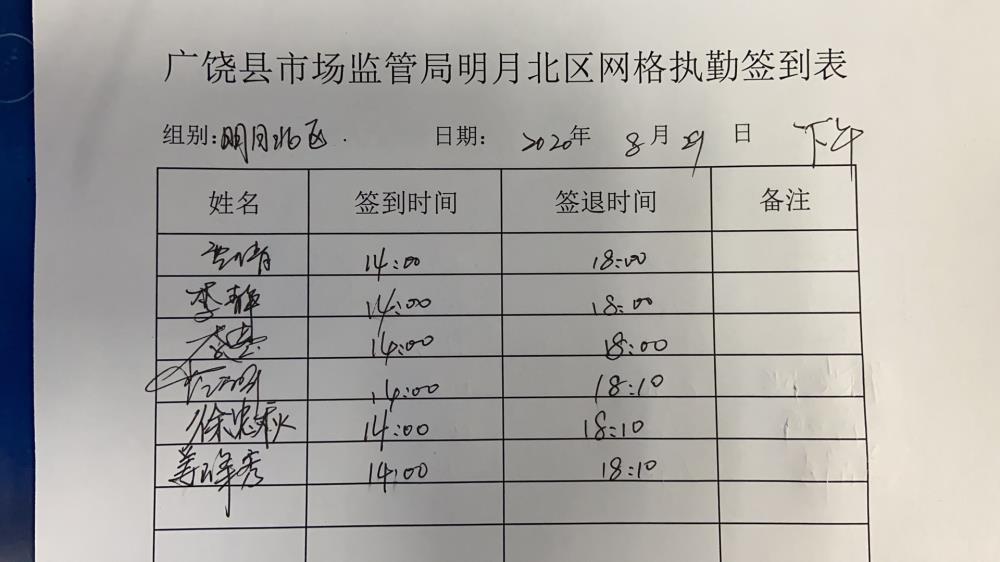 广饶县市场监管局明月北区网格执勤签到表
组别:明月北区. 日期: 2020年 8月29日 下午
姓名 签到时间 签退时间 备注
14:00 18:00
李静 14:00 18:00
14:00 18:00
14:00 18:10
徐忠秋 14:00 18:10
姜峰秀 14:00 18:10